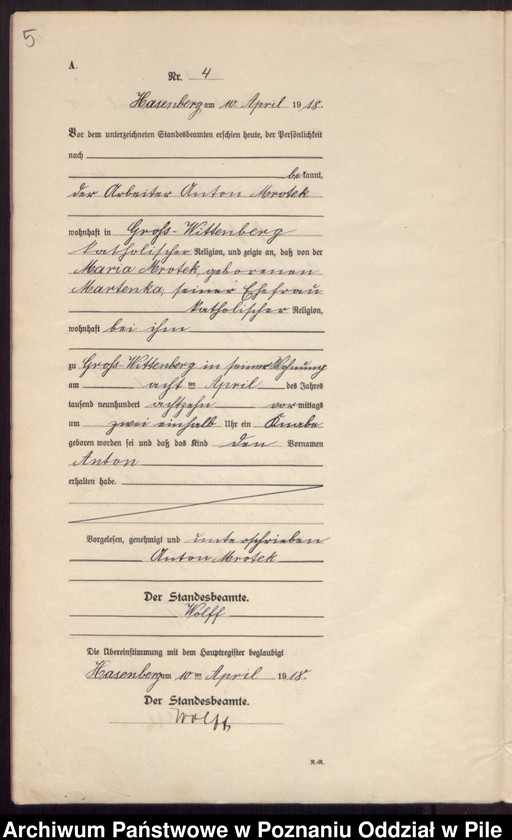 5
A.
Nr. 4
Hasenberg am 10 April 1918.
Vor dem unterzeichneten Standesbeamten erschien heute, der Persönlichkeit
nach
bekannt,
der Arbeiter Anton Mrotek
wohnhaft in Groß-Wittenberg
katholischer Religion, und zeigte an, daß von der
Maria Mrotek, geborenen
Martenka, seiner Ehefrau
katholischer Religion,
wohnhaft bei ihm
zu Groß-Wittenberg in seiner Wohnung
am acht ten April des Jahres
tausend neunhundert achtzehn vormittags
um zwei einhalb Uhr ein Knabe
geboren worden sei und daß das Kind den Vornamen
Anton
erhalten habe.
Vorgelesen, genehmigt und unterschrieben
Anton Mrotek
Der Standesbeamte.
Wolff
Die Übereinstimmung mit dem Hauptregister beglaubigt
Hasenberg am 10 ten April 1918.
Der Standesbeamte.
Wolff
R.-R.
Archiwum Państwowe w Poznaniu Oddział w Pile